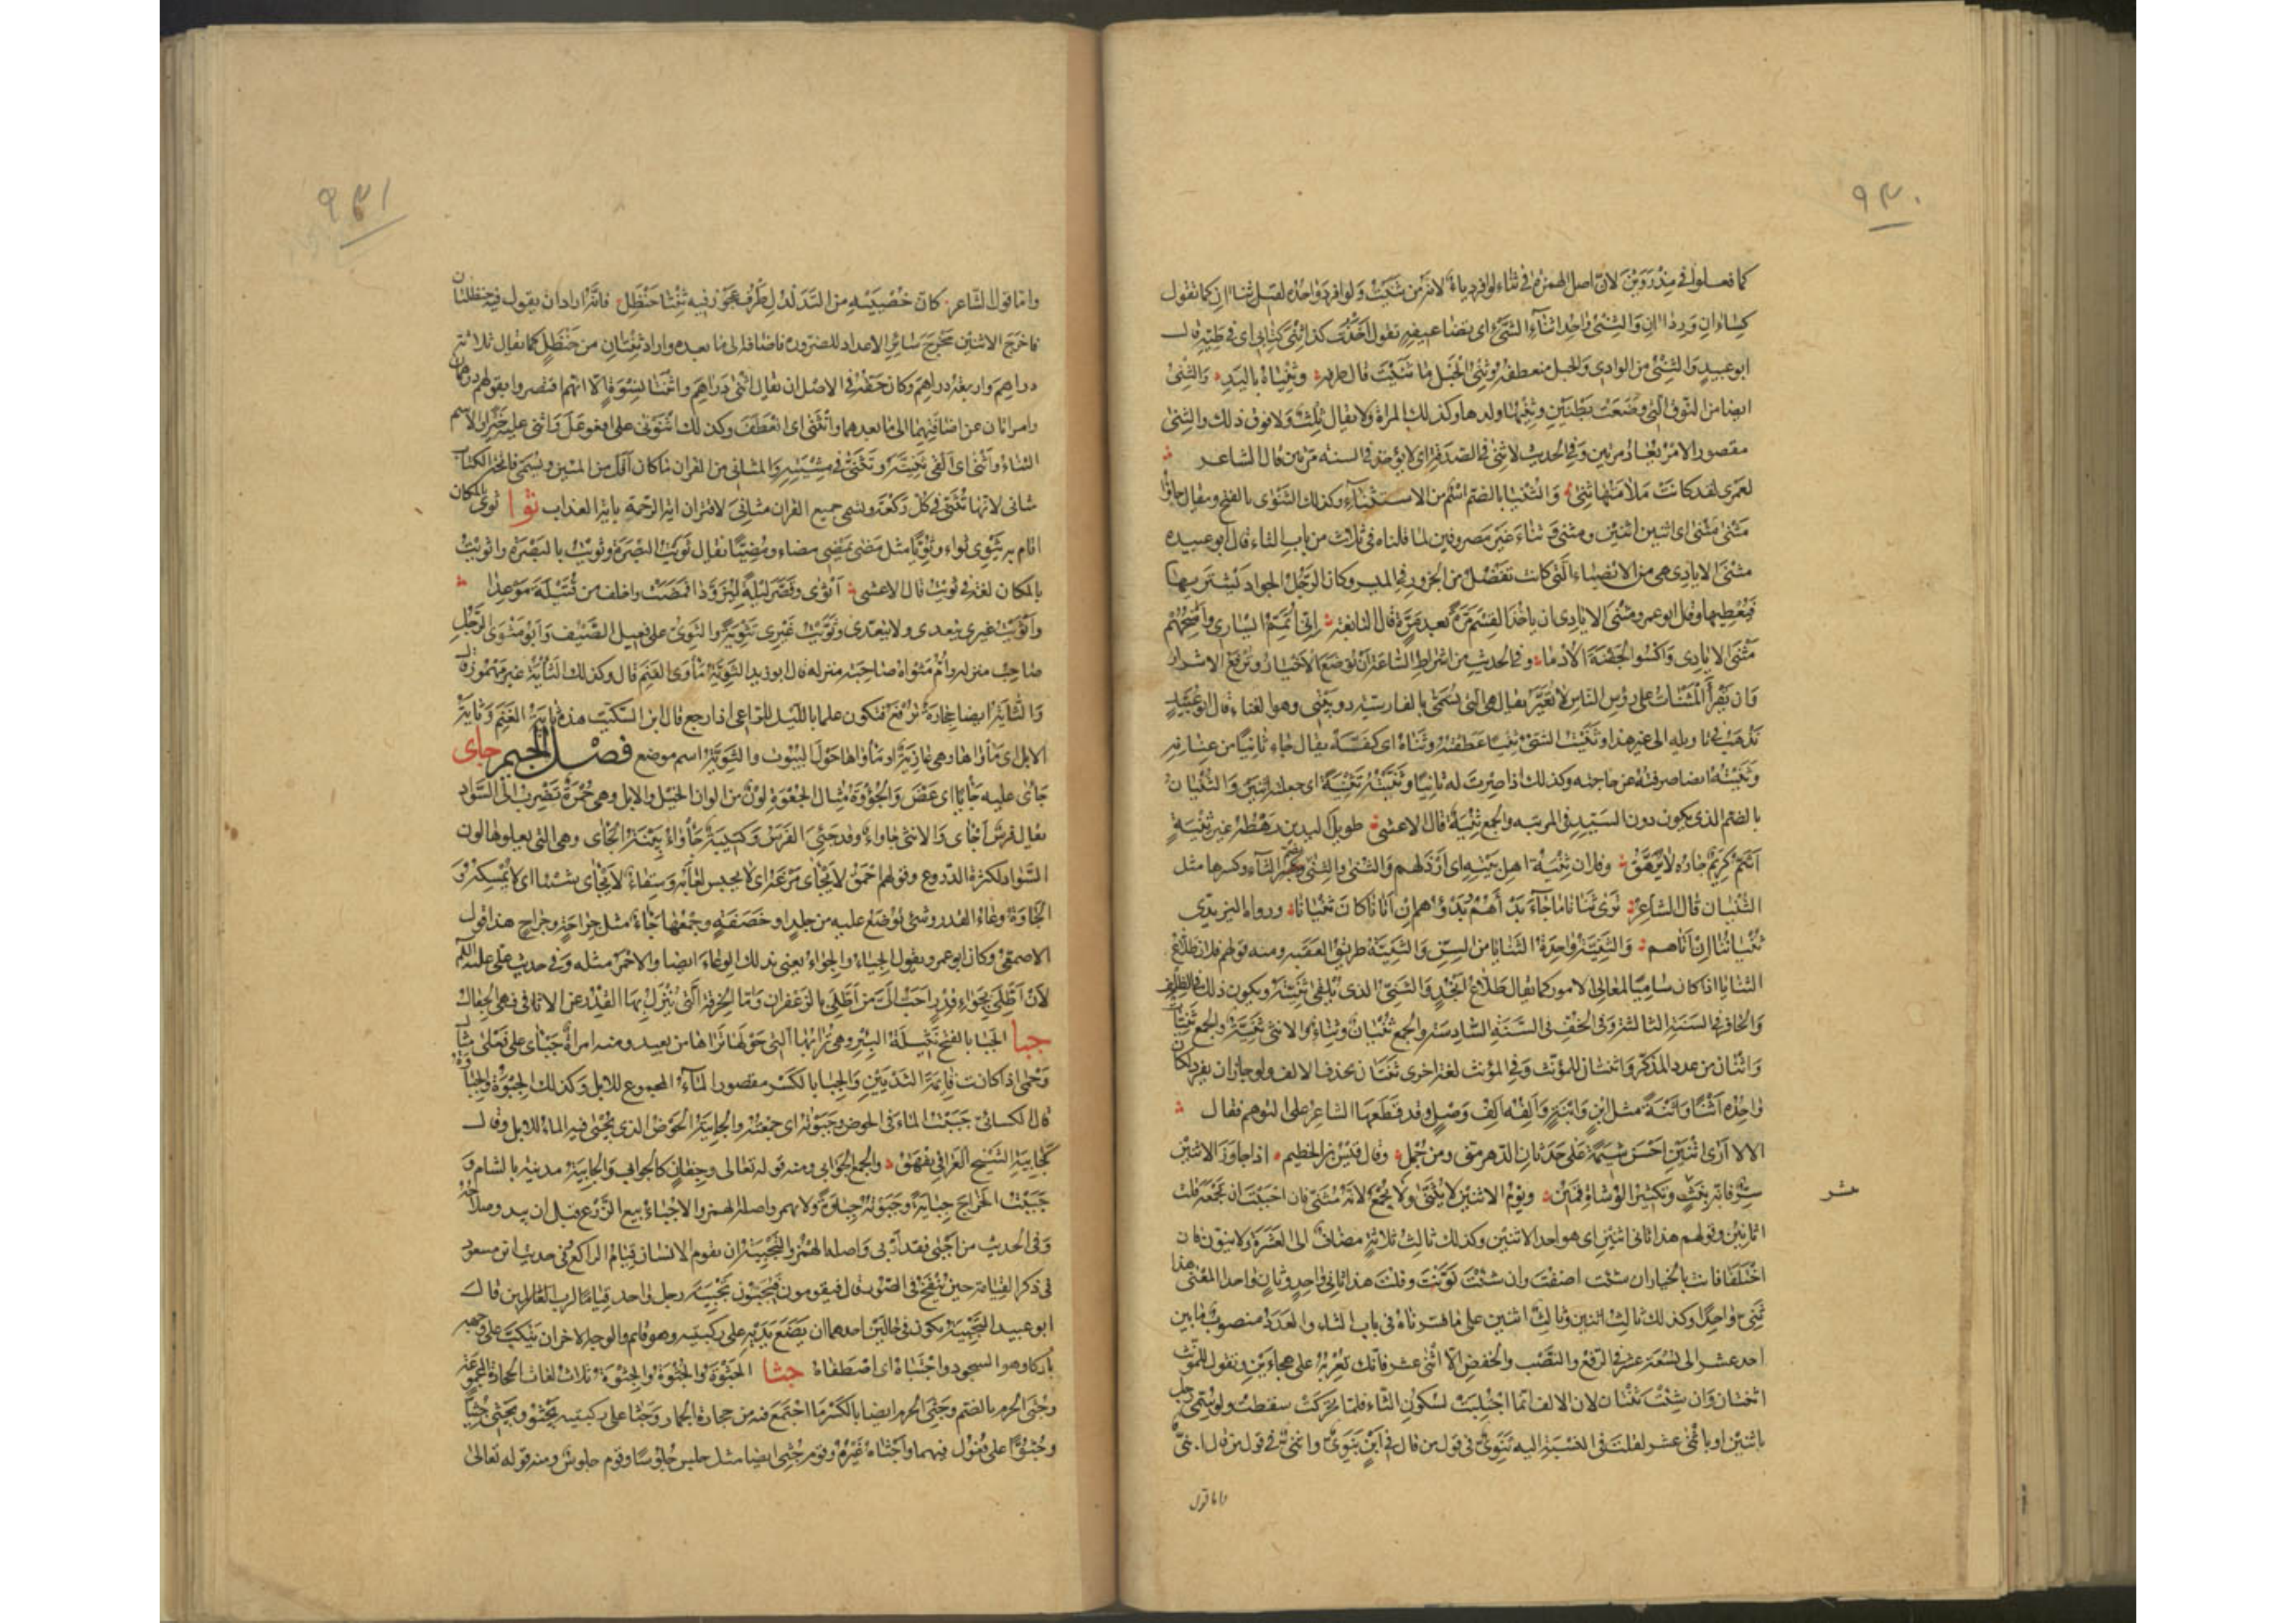 ٩٣٠
كما فعلوا في مِذْرَوَيْن لانّ اصل الهمزة في ثناء لو افرد ياءٌ لانه من ثنيت ولو افرد واحده لقيل ثناآن كما تقول
كساءان ورداآن والثِنْيُ واحد اثناء الشيء اى تضاعيفه تقول انفذت كذا ثِنْيَ كتابي اى في طيّه قال
ابو عبيد والثِنْيُ من الوادى والجبل منعطفه وثِنْيُ الحَبْل ما ثَنَيْتَ قال طرفة وثِنْياه باليد والثِنْيُ
ايضا من النوق التي وضعت بطنين وثِنْيُها ولدها وكذلك المرأة ولا يقال ثِلْثٌ ولا فوق ذلك والثِنى
مقصور الامر يعاد مرتين وفي الحديث لا ثِنى في الصدقة اى لا تؤخذ في السنة مرتين قال الشاعر
لعمرى لقد كانت ملامتها ثِنى والثُنيا بالضم اسم من الاستثناء وكذلك الثَنْوى بالفتح ويقال جاؤا
مثنى مثنى اى اثنين اثنين ومثنى وثناء غير مصروفين لما قلناه في ثلاث من باب الثاء قال ابو عبيدة
مثنى الايادى هي من الانصباء التي كانت تفضل من الجزور في الميسر وكان الرجل الجواد يشتريها
فيعطيها وقال ابو عمرو مثنى الايادى ان ياخذ القسم مرة بعد مرة قال النابغة انّي اتمّم ايسارى وامنحهم
مثنى الايادى واكسو الجفنة الأدما وفي الحديث من اشراط الساعة ان توضع الاخيار وترفع الاشرار
وان يقرأ المثناة على رؤس الناس لا تغيّر يقال هي التي تسمّى بالفارسية دوبيتي وهو الغناء قال ابو عبيد
يذهب في تاويله الى غير هذا وثنيت الشيء ثنيا عطفته وثناه اى كفّه يقال جاء ثانيا من عنانه
وثنيته ايضا صرفته عن حاجته وكذلك اذا صرت له ثانيا وثنّيته تثنية اى جعلته اثنين والثُنيان
بالضم الذى يكون دون السيد في المرتبة والجمع ثِنْية قال الاعشى طويل اليدين رهطه غير ثِنْية
اشم كريم جاره لا يرهّق وفلان ثِنْية اهل بيته اى ارذلهم والثُنى والثِنى بضم الثاء وكسرها مثل
الثنيان قال الشاعر ترى ثنانا اذا ما جاء بدأهم وبدؤهم ان اتانا كان ثنيانا ورواه اليزيدى
ثنياننا ان اتاهم والثنيّة واحدة الثنايا من السنّ والثنيّة طريق العقبة ومنه قولهم فلان طلّاع
الثنايا اذا كان ساميا لمعالى الامور كما يقال طلّاع انجد والثنيّ الذى يلقي ثنيته ويكون ذلك في الظلف
والحافر في السنة الثالثة وفي الخفّ في السنة السادسة والجمع ثُنيان وثِناء والانثى ثنيّة والجمع ثنيّات
واثنان من عدد المذكر واثنتان للمؤنث وفي المؤنث لغة اخرى ثنتان بحذف الالف ولو جاز ان يفرد لكان
واحده اثنا واثنة مثل ابن وابنة والفه الف وصل وقد قطعها الشاعر على التوهم فقال
الا لا ارى اثنين احسن شيمة على حدثان الدهر منّي ومن جمل وقال قيس بن الخطيم اذا جاوز الاثنين
سرّ فانه بنثّ وتكثير الوشاة قمين ويوم الاثنين لا يثنّى ولا يجمع لانه مثنى فان احببت ان تجمعه قلت
اثانين وقولهم هذا ثاني اثنين اى هو احد الاثنين وكذلك ثالث ثلاثة مضاف الى العشرة ولا ينوّن فان
اختلفا فانت بالخيار ان شئت اضفت وان شئت نوّنت وقلت هذا ثاني واحد وثان واحدا المعنى هذا
ثنّى واحدا وكذلك ثالث اثنين وثالث اثنين على ما فسرناه في باب الثاء والعدد منصوب ما بين
احد عشر الى تسعة عشر في الرفع والنصب والخفض الا اثنى عشر فانك تعربه على هجاءين وتقول للمؤنث
اثنتان وان شئت ثنتان لان الالف انما اجتلبت لسكون الثاء فلما تحركت سقطت ولو سمّي رجل
باثنين او باثنى عشر لقلت في النسبة اليه ثنوىّ في قول من قال في ابن بنوىّ واثنىّ في قول من قال ابنىّ
واما قول
٩٣١
واما قول الشاعر كان خصييه من التدلدل ظرف عجوز فيه ثنتا حنظل فانه اراد ان يقول فيه حنظلتان
فاخرج الاثنين مخرج سائر الاعداد للضرورة فاضافه الى ما بعده واراد ثنتان من حنظل كما يقال ثلاثة
دراهم واربعة دراهم وكان حقه في الاصل ان يقال اثنى دراهم واثنتا نسوة الا انهم اقتصروا بقولهم درهمان
وامراتان عن اضافتهما الى ما بعدهما وانثنى اى انعطف وكذلك اثنونى على افعوعل واثنى عليه خيرا والاسم
الثناء واثنى اى القى ثنيته وتثنّى في مشيته والمثاني من القرآن ما كان اقل من المئين وتسمى فاتحة الكتاب
مثاني لانها تثنى في كل ركعة وتسمى جميع القرآن مثاني لاقتران آية الرحمة باية العذاب ثوا ثوى بالمكان
اقام به يثوى ثواء وثويّا مثل مضى يمضي مضاء ومضيّا يقال ثويت البصرة وثويت بالبصرة واثويت
بالمكان لغة في ثويت قال الاعشى اثوى وقصّر ليلة ليزوّدا فمضت واخلف من قتيلة موعدا
واثويت غيرى يتعدى ولا يتعدى وثوّيت غيرى تثوية والثوىّ على فعيل الضيف وابو مثوى الرجل
صاحب منزله وامّ مثواه صاحبة منزله قال ابو زيد الثويّة مأوى الغنم قال وكذلك الثاية غير مهموز قال
والثاية ايضا حجارة ترفع فتكون علما بالليل للراعى اذا رجع قال ابن السكيت هذه ثاية الغنم وثاية
الابل اى مأواها وهي عازبة او مأواها حول البيوت والثويّة اسم موضع فصل الجيم جاى
جأى عليه جأيا اى عضّ والجؤوة مثال الجعوة لون من الوان الخيل والابل وهي حمرة تضرب الى السواد
يقال فرس اجأى والانثى جأواء وقد جئي الفرس وكتيبة جأواء بيّنة الجأى وهي التي يعلوها لون
السواد لكثرة الدروع وقولهم احمق لا يجأى مرغه اى لا يحبس لعابه وسقاء لا يجأى شيئا اى لا يمسكه و
الجاوة وعاء القدر وشيء توضع عليه من جلد او خصفة وجمعها جاء مثل جراحة وجراح هذا قول
الاصمعي وكان ابو عمرو يقول الجياء والجواء يعنى بذلك الوعاء ايضا والاحمر مثله وفي حديث علي عليه السلم
لان اطّلي بجواء قدر احب اليّ من اطّلي بالزعفران واما الخرقة التي تنزل بها القدر عن الاثافي فهي الجعال
جبا الجبا بالفتح نثيلة البئر وهي ترابها التي حولها تراها من بعيد ومنه امرأة جبأى على فعلى مثال
وحمى اذا كانت قائمة الثديين والجبا بالكسر مقصور الماء المجموع للابل وكذلك الجبوة والجباوة
قال الكسائي جبيت الماء في الحوض وجبوته اى جمعته والجابية الحوض الذى يجبى فيه الماء للابل وقال
كجابية الشيخ العراقي تفهق والجمع الجوابي ومنه قوله تعالى وجفان كالجوابي والجابية مدينة بالشام و
جبيت الخراج جباية وجبوته جباوة ولا يهمز واصله الهمز والاجباء بيع الزرع قبل ان يبدو صلاحه
وفي الحديث من اجبى فقد اربى واصله الهمز والتجبية ان يقوم الانسان قيام الراكع وفي حديث ابن مسعود
في ذكر القيامة حين ينفخ في الصور قال فيقومون فيجبّون تجبية رجل واحد قياما لرب العالمين قال
ابو عبيد التجبية تكون في حالين احدهما ان يضع يديه على ركبتيه وهو قائم والوجه الاخر ان ينكبّ على وجهه
باركا وهو السجود واجتباه اى اصطفاه جثا الجثوة والجثوة والجثوة ثلاث لغات الحجارة المجموعة
وجثى الحرم بالضم وجثى الحرم ايضا بالكسر ما اجتمع فيه من حجارة الجمار وجثا على ركبتيه يجثو ويجثي جثيّا
وجثوّا على فعول فيهما واجثاه غيره وقوم جثيّ ايضا مثل جلس جلوسا وقوم جلوس ومنه قوله تعالى